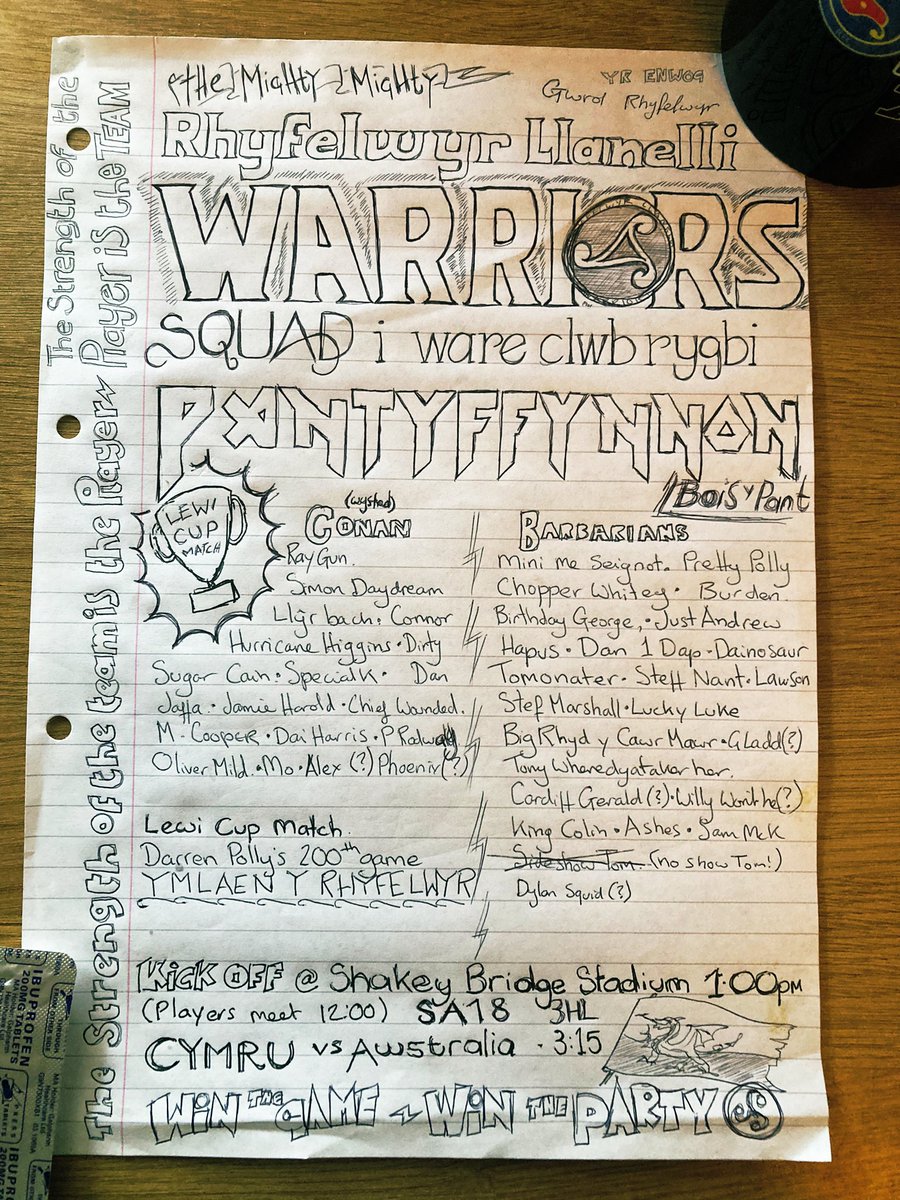 The Mighty Mighty
YR ENWOG
Gwrol Rhyfelwyr
Rhyfelwyr Llanelli
WARRIORS
SQUAD i ware clwb rygbi
PANTYFFYNNON
Bois y Pant
LEWI
CUP
MATCH
(wystad)
CONAN
Ray Gun.
Simon Daydream
Llŷr bach. Connor
Hurricane Higgins • Dirty
Sugar Cain • Special K • Dan
Jaffa • Jamie Harold • Chief Wounded.
M. Cooper • Dai Harris • P Radway
Oliver Mild • Mo • Alex (?) Phoenix (?)
Lewi Cup Match.
Darren Polly's 200th game
YMLAEN Y RHYFELWYR
BARBARIANS
Mini me Seignot. Pretty Polly
Chopper Whitey • Burden.
Birthday George, • Just Andrew
Hapus • Dan 1 Dap • Dainosaur
Tomonater • Steff Nant • Lawson
Stef Marshall • Lucky Luke
Big Rhyd y Cawr Mawr • G Ladd (?)
Tony Wharedyatakerher.
Cardiff Gerald (?) • Willy Wonthe (?)
King Colin • Ashes • Sam McK
Sideshow Tom. (no show Tom!)
Dylan Squid (?)
KicK OFF @ Shakey Bridge Stadium 1:00pm
(Players meet 12:00) SA18 3HL
CYMRU vs Awstralia - 3:15
WiN THE GAME WiN THE PARTY
The Strength of the team is the Player
The Strength of the
Player is the TEAM
IBUPROFEN
200MG TABLETS